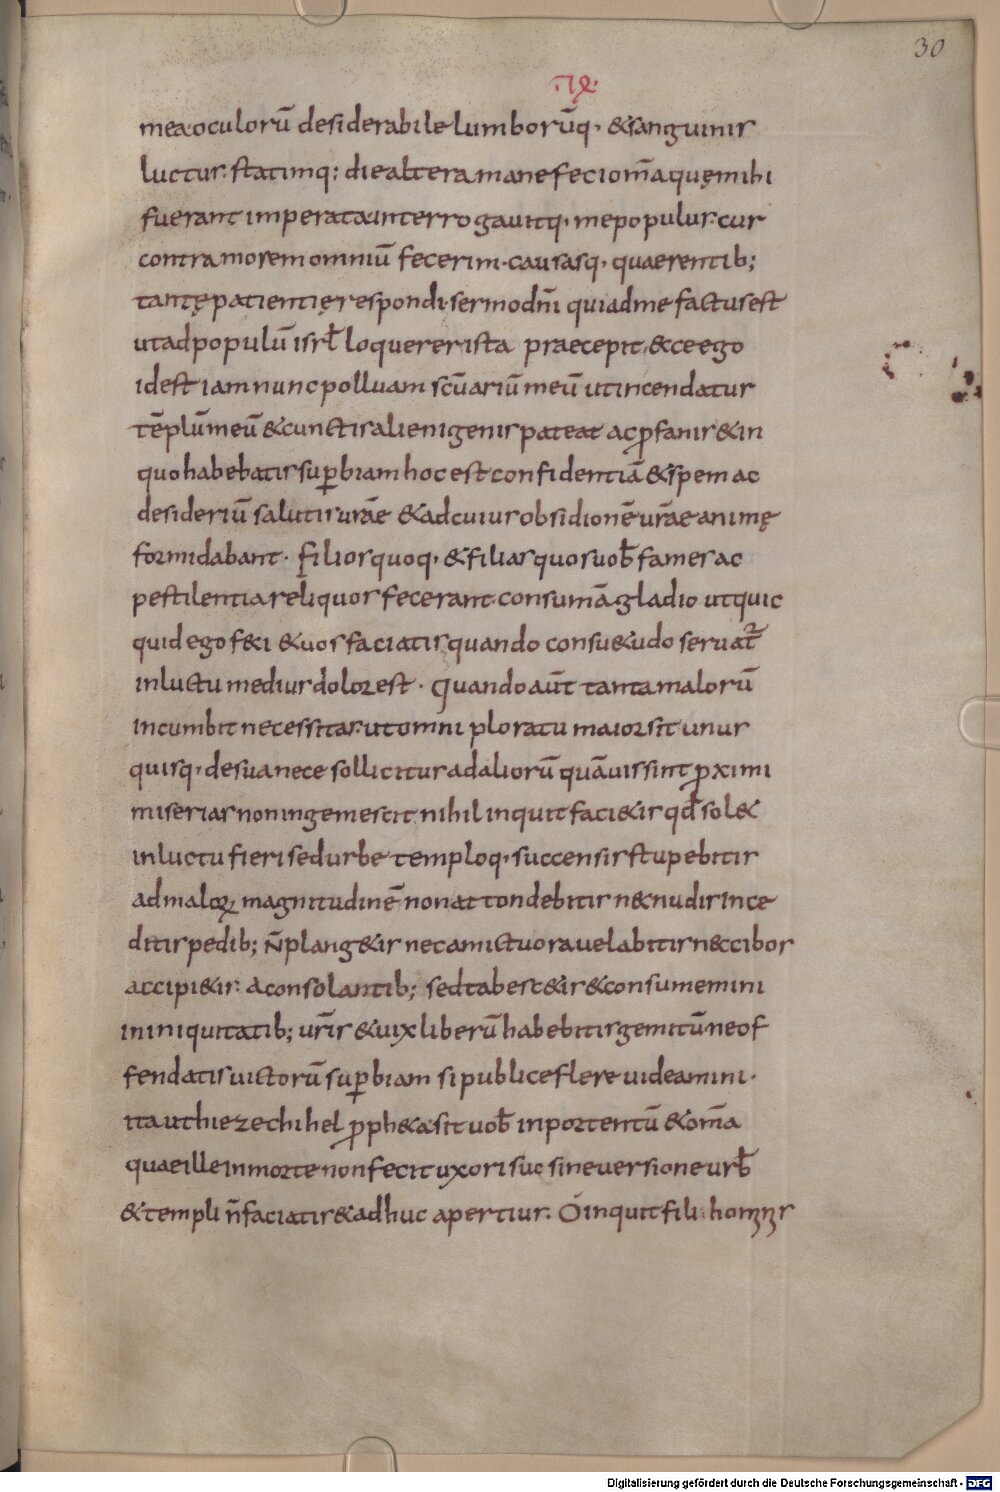 30
mea oculorū desiderabile lumborūq· & sanguinis
luctus. statimq; die altera mane feci om̄a quę mihi
fuerant imperata interrogauitq· me populus. cur
contra morem omniū fecerim. causasq· quaerentib;
tantę patientię respondi. sermo dn̄i qui ad me factus est
ut ad populū isrl̄ loquerer ista praecepit. & ecce ego
id est iam nunc polluam sc̄uariū meū ut incendatur
tēplū meū & cunctis alienigenis pateat ac ꝓfanis & in
quo habebatis suꝑbiam hoc est confidentiā & spem ac
desideriū salutis ur̄ae & ad cuius obsidionē ur̄ae animę
formidabant. filios quoq· & filias quos uob̄ fames ac
pestilentia reliquos fecerant consumā gladio ut quic
quid ego feci & uos faciatis quando consu&udo seruat᷑
in luctu medius dolor est. Quando aūt tanta malorū
incumbit necessitas. ut omni ploratu maior sit unus
quisq· de sua nece sollicitus ad aliorū quāuis sint ꝓximi
miserias non ingemescit nihil inquit faci&is qd̄ sol&
in luctu fieri sed urbe temploq· succensis stupebitis
ad maloꝝ magnitudinē non attondebitis n& nudis ince
ditis pedib; n̄ plang&is nec amictu ora uelabitis n&cibos
accipi&is. a consolantib; sed tabesc&is & consumemini
in iniquitatib; ur̄is & uix liberū habebitis gemitū ne of
fendatis uictorū suꝑbiam si publice flere uideamini.
ita ut hiezechihel ꝓph&a sit uob̄ in portentū & om̄a
quae ille in morte non fecit uxori suę sine uersione urb̄
& templi n̄ faciatis & adhuc apertius. O inquit fili hominis